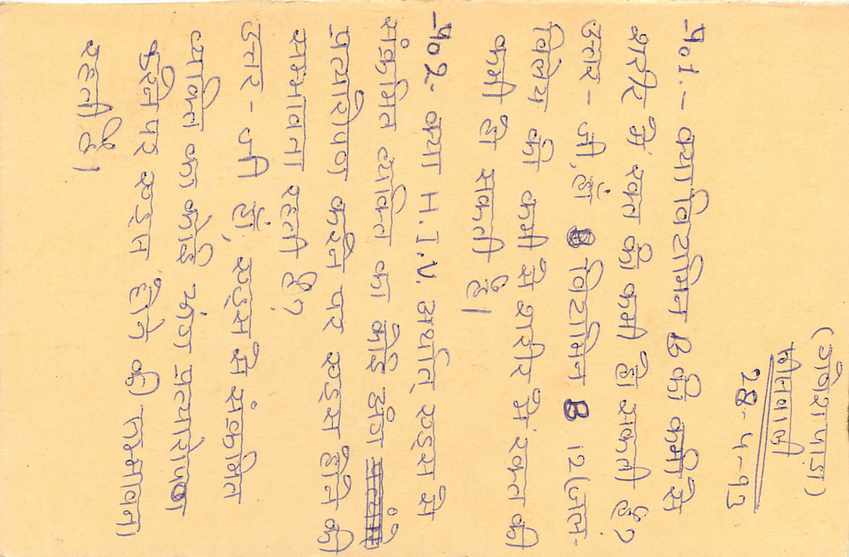 (गणेशपाड़ा)
भीमवाली
28-4-93
प्र01.- क्या विटामिन B की कमी से
शरीर में रक्त की कमी हो सकती है?
उत्तर - जी, हाँ B विटामिन B 12 (जल-
विलेय की कमी से शरीर में रक्त की
कमी हो सकती है।
प्र02- क्या H.I.V. अर्थात् एड्स से
संक्रमित व्यक्ति का कोई अंग
प्रत्यारोपण करने पर एड्स होने की
सम्भावना रहती है?
उत्तर - जी हाँ, एड्स से संक्रमित
व्यक्ति का कोई अंग प्रत्यारोपण
करने पर एड्स होने की सम्भावना
रहती है।